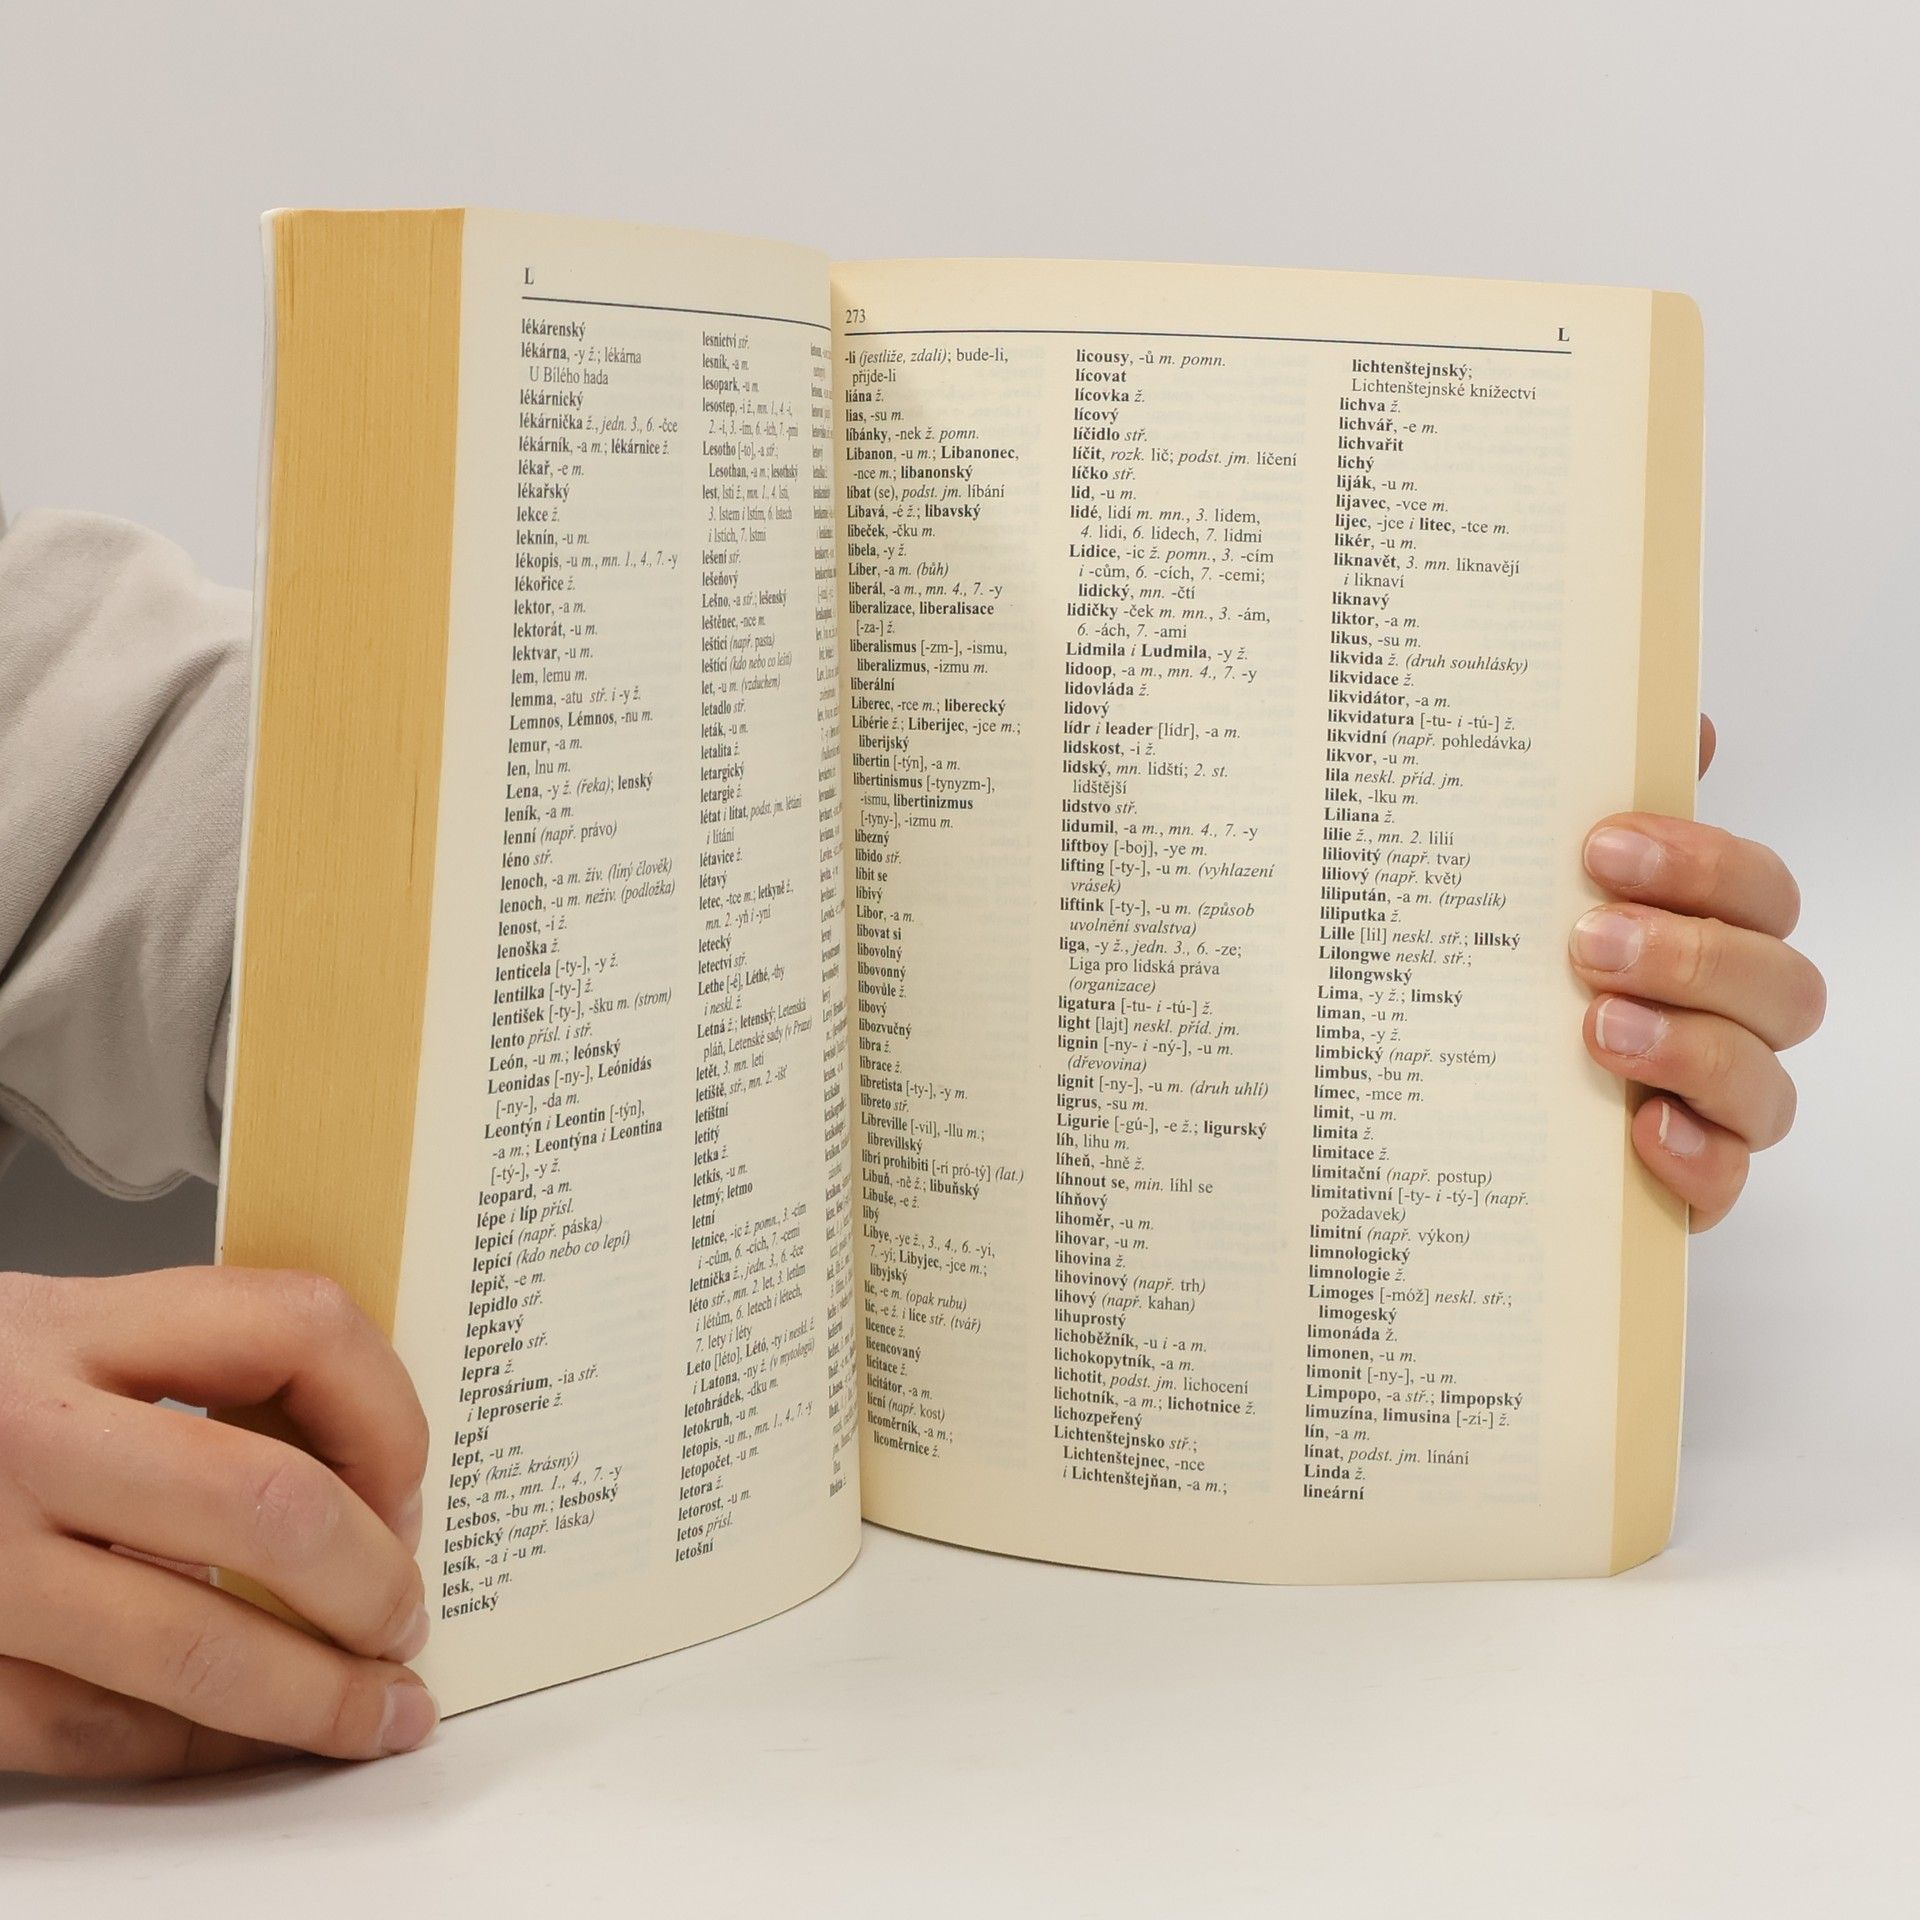 L
lékárenský
lékárna, -y ž.; lékárna
U Bílého hada
lékárnický
lékárnička ž., jedn. 3., 6. -čce
lékárník, -a m.; lékárnice ž.
lékař, -e m.
lékařský
lekce ž.
leknín, -u m.
lékopis, -u m., mn. 1., 4., 7. -y
lékořice ž.
lektor, -a m.
lektorát, -u m.
lektvar, -u m.
lem, lemu m.
lemma, -atu stř. i -y ž.
Lemnos, Lémnos, -nu m.
lemur, -a m.
len, lnu m.
Lena, -y ž. (řeka); lenský
leník, -a m.
lenní (např. právo)
léno stř.
lenoch, -a m. živ. (líný člověk)
lenoch, -u m. neživ. (podložka)
lenost, -i ž.
lenoška ž.
lenticela [-ty-], -y ž.
lentilka [-ty-] ž.
lentišek [-ty-], -šku m. (strom)
lento přísl. i stř.
León, -u m.; leónský
Leonidas [-ny-], Leónidás
[-ny-], -da m.
Leontýn i Leontin [-týn],
-a m.; Leontýna i Leontina
[-tý-], -y ž.
leopard, -a m.
lépe i líp přísl.
lepicí (např. páska)
lepící (kdo nebo co lepí)
lepič, -e m.
lepidlo stř.
lepkavý
leporelo stř.
lepra ž.
leprosárium, -ia stř.
i leproserie ž.
lepší
lept, -u m.
lepý (kniž. krásný)
les, -a m., mn. 1., 4., 7. -y
Lesbos, -bu m.; lesboský
lesbický (např. láska)
lesík, -a i -u m.
lesk, -u m.
lesnický
lesnictví stř.
lesník, -a m.
lesopark, -u m.
lesostep, -i ž., mn. 1., 4. -i,
2. -í, 3. -ím, 6. -ích, 7. -pmi
Lesotho [-to], -a stř.;
Lesothan, -a m.; lesothský
lest, lsti ž., mn. 1., 4. lsti,
3. lstem i lstím, 6. lstech
i lstích, 7. lstmi
lešení stř.
lešeňový
Lešno, -a stř.; lešenský
leštěnec, -nce m.
lešticí (např. pasta)
leštící (kdo nebo co leští)
let, -u m. (vzduchem)
letadlo stř.
leták, -u m.
letalita ž.
letargický
letargie ž.
létat i lítat, podst. jm. létání
i lítání
létavice ž.
létavý
letec, -tce m.; letkyně ž.,
mn. 2. -yň i -yní
letecký
letectví stř.
Lethe [-é], Léthé, -thy
i neskl. ž.
Letná ž.; letenský; Letenská
pláň, Letenské sady (v Praze)
letět, 3. mn. letí
letiště, stř., mn. 2. -išť
letištní
letitý
letka ž.
letkis, -u m.
letmý; letmo
letní
letnice, -ic ž. pomn., 3. -cím
i -cům, 6. -cích, 7. -cemi
letnička ž., jedn. 3., 6. -čce
léto stř., mn. 2. let, 3. letům
i létům, 6. letech i létech,
7. lety i léty
Leto [léto], Létó, -ty i neskl. ž.
i Latona, -ny ž. (v mytologii)
letohrádek, -dku m.
letokruh, -u m.
letopis, -u m., mn. 1., 4., 7. -y
letopočet, -u m.
letora ž.
letorost, -u m.
letos přísl.
letošní
273
L
-li (jestliže, zdali); bude-li,
přijde-li
liána ž.
lias, -su m.
líbánky, -nek ž. pomn.
Libanon, -u m.; Libanonec,
-nce m.; libanonský
líbat (se), podst. jm. líbání
Libavá, -é ž.; libavský
libeček, -čku m.
libela, -y ž.
Liber, -a m. (bůh)
liberál, -a m., mn. 4., 7. -y
liberalizace, liberalisace
[-za-] ž.
liberalismus [-zm-], -ismu,
liberalizmus, -izmu m.
liberální
Liberec, -rce m.; liberecký
Libérie ž.; Liberijec, -jce m.;
liberijský
libertin [-týn], -a m.
libertinismus [-tynyzm-],
-ismu, libertinizmus
[-tyny-], -izmu m.
libezný
libido stř.
líbit se
líbivý
Libor, -a m.
libovat si
libovolný
libovonný
libovůle ž.
libový
libozvučný
libra ž.
librace ž.
libretista [-ty-], -y m.
libreto stř.
Libreville [-vil], -llu m.;
librevillský
libri prohibiti [-rí pró-tý] (lat.)
Libuň, -ně ž.; libuňský
Libuše, -e ž.
libý
Libye, -ye ž., 3., 4., 6. -yi,
7. -yí; Libyjec, -jce m.;
libyjský
líc, -e m. (opak rubu)
líc, -e ž. i líce stř. (tvář)
licence ž.
licencovaný
licitace ž.
licitátor, -a m.
lícní (např. kost)
licoměrník, -a m.;
licoměrnice ž.
licousy, -ů m. pomn.
lícovat
lícovka ž.
lícový
líčidlo stř.
líčit, rozk. lič; podst. jm. líčení
líčko stř.
lid, -u m.
lidé, lidí m. mn., 3. lidem,
4. lidi, 6. lidech, 7. lidmi
Lidice, -ic ž. pomn., 3. -cím
i -cům, 6. -cích, 7. -cemi;
lidický, mn. -čtí
lidičky -ček m. mn., 3. -ám,
6. -ách, 7. -ami
Lidmila i Ludmila, -y ž.
lidoop, -a m., mn. 4., 7. -y
lidovláda ž.
lidový
lídr i leader [lídr], -a m.
lidskost, -i ž.
lidský, mn. lidští; 2. st.
lidštější
lidstvo stř.
lidumil, -a m., mn. 4., 7. -y
liftboy [-boj], -ye m.
lifting [-ty-], -u m. (vyhlazení
vrásek)
liftink [-ty-], -u m. (způsob
uvolnění svalstva)
liga, -y ž., jedn. 3., 6. -ze;
Liga pro lidská práva
(organizace)
ligatura [-tu- i -tú-] ž.
light [lajt] neskl. příd. jm.
lignin [-ny- i -ný-], -u m.
(dřevovina)
lignit [-ny-], -u m. (druh uhlí)
ligrus, -su m.
Ligurie [-gú-], -e ž.; ligurský
líh, lihu m.
líheň, -hně ž.
líhnout se, min. líhl se
líhňový
lihoměr, -u m.
lihovar, -u m.
lihovina ž.
lihovinový (např. trh)
lihový (např. kahan)
lihuprostý
lichoběžník, -u i -a m.
lichokopytník, -a m.
lichotit, podst. jm. lichocení
lichotník, -a m.; lichotnice ž.
lichozpeřený
Lichtenštejnsko stř.;
Lichtenštejnec, -nce
i Lichtenštejňan, -a m.;
lichtenštejnský;
Lichtenštejnské knížectví
lichva ž.
lichvář, -e m.
lichvařit
lichý
liják, -u m.
lijavec, -vce m.
lijec, -jce i litec, -tce m.
likér, -u m.
liknavět, 3. mn. liknavějí
i liknaví
liknavý
liktor, -a m.
likus, -su m.
likvida ž. (druh souhlásky)
likvidace ž.
likvidátor, -a m.
likvidatura [-tu- i -tú-] ž.
likvidní (např. pohledávka)
likvor, -u m.
lila neskl. příd. jm.
lilek, -lku m.
Liliana ž.
lilie ž., mn. 2. lilií
liliovitý (např. tvar)
liliový (např. květ)
lilipután, -a m. (trpaslík)
liliputka ž.
Lille [lil] neskl. stř.; lillský
Lilongwe neskl. stř.;
lilongwský
Lima, -y ž.; limský
liman, -u m.
limba, -y ž.
limbický (např. systém)
limbus, -bu m.
límec, -mce m.
limit, -u m.
limita ž.
limitace ž.
limitační (např. postup)
limitativní [-ty- i -tý-] (např.
požadavek)
limitní (např. výkon)
limnologický
limnologie ž.
Limoges [-móž] neskl. stř.;
limogeský
limonáda ž.
limonen, -u m.
limonit [-ny-], -u m.
Limpopo, -a stř.; limpopský
limuzína, limusina [-zí-] ž.
lín, -a m.
línat, podst. jm. línání
Linda ž.
lineární